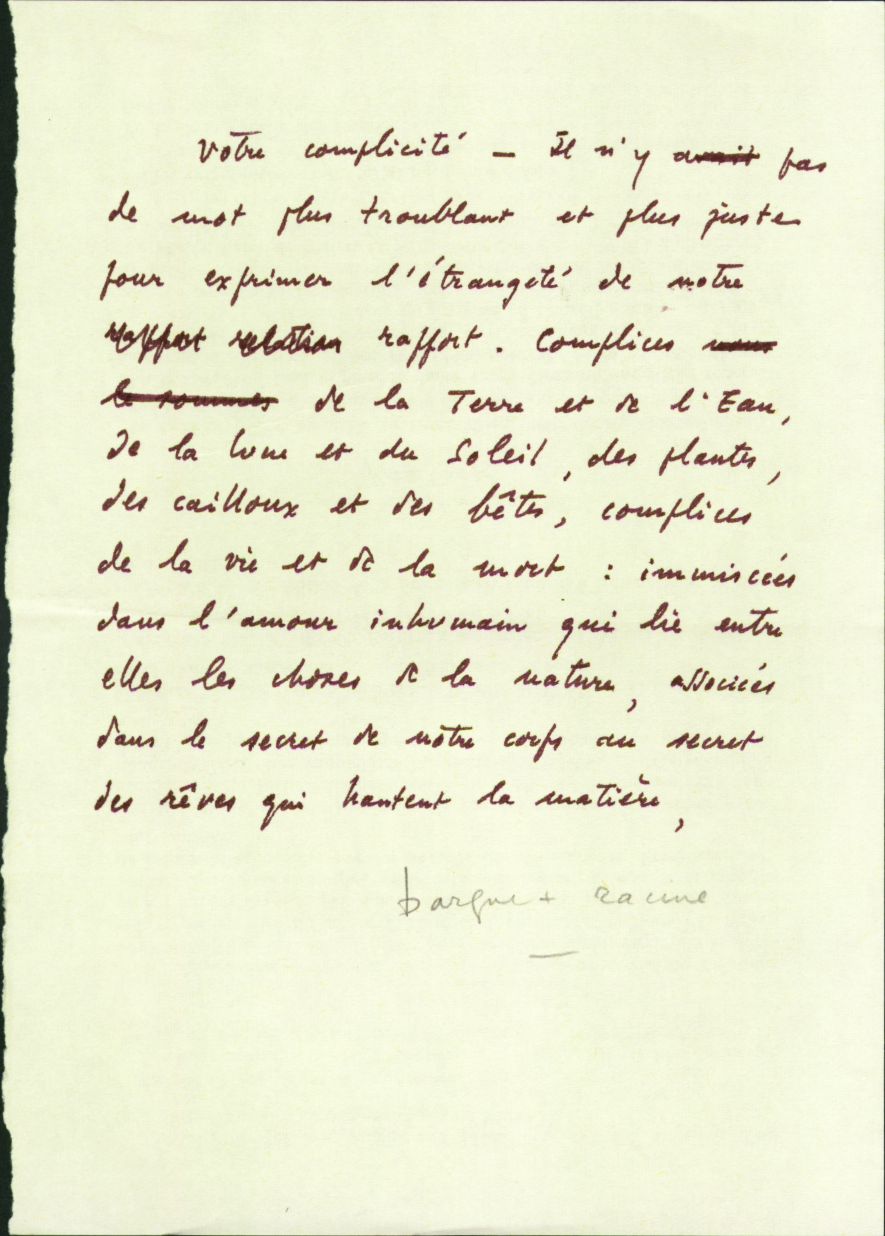 Votre complicité — Il n'y avait pas
de mot plus troublant et plus juste
pour exprimer l'étrangeté de notre
rapport relation rapport. Complices nous
le sommes de la Terre et de l'Eau,
de la lune et du Soleil, des plantes,
des cailloux et des bêtes, complices
de la vie et de la mort : immiscées
dans l'amour inhumain qui lie entre
elles les choses de la nature, associées
dans le secret de notre corps au secret
des rêves qui hantent la matière,
barque + racine